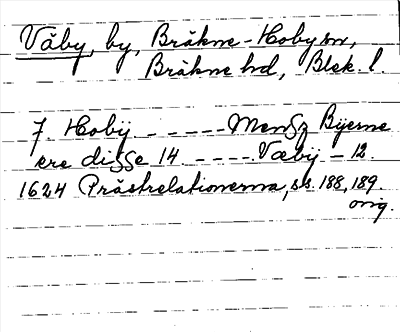 Väby, by, Bräkne-Hoby sn,
Bräkne hd, Blek. l.
7. Hobÿ _ _ _ _ _ Mensz Byerne
ere disse 14. _ _ _ _ . Væbÿ – 12.
1624 Prästrelationerna, ss. 188, 189.
orig.